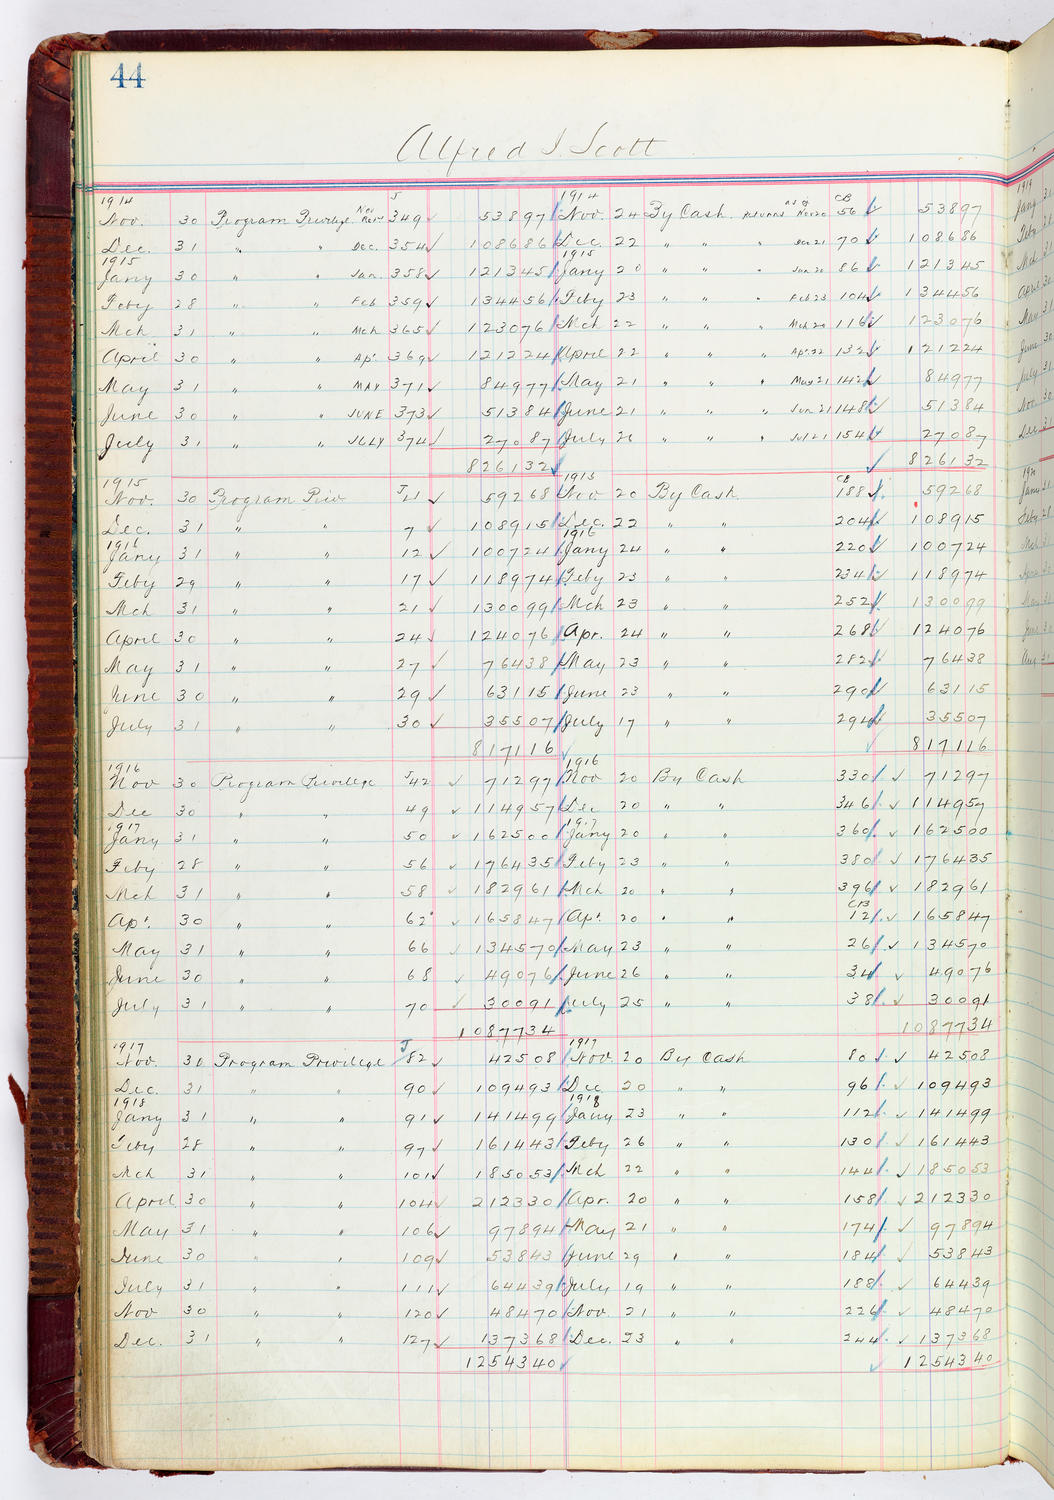 44
Alfred I. Scott
1914 J 1914 CB
Nov. 30 Program Privilege Nov 349 53897 Nov. 24 By Cash Returns as of Nov 20 56 53897
Dec. 31 " " Dec. 354 108686 Dec. 22 " " Dec 21 70 108686
1915 1915
Jany 30 " " Jan. 358 121345 Jany 20 " " " Jan 20 86 121345
Feby 28 " " Feb 359 134456 Feby 23 " " " Feb 23 104 134456
Mch 31 " " Mch 365 123076 Mch 22 " " " Mch 20 116 123076
April 30 " " Apr. 369 121224 April 22 " " " Apr. 22 132 121224
May 31 " " MAY 371 84977 May 21 " " " May 21 142 84977
June 30 " " JUNE 373 51384 June 21 " " " Jun 21 148 51384
July 31 " " JULY 374 27087 July 21 " " " Jul 21 154 27087
826132 826132
1915 1915 CB
Nov. 30 Program Priv J 21 59268 Nov 20 By Cash 188 59268
Dec. 31 " " 7 108915 Dec. 22 " " 204 108915
1916 1916
Jany 31 " " 12 100724 Jany 24 " " 220 100724
Feby 29 " " 17 118974 Feby 23 " " 234 118974
Mch 31 " " 21 130099 Mch 23 " " 252 130099
April 30 " " 24 124076 Apr. 24 " " 268 124076
May 31 " " 27 76438 May 23 " " 282 76438
June 30 " " 29 63115 June 23 " " 290 63115
July 31 " " 30 35507 July 17 " " 294 35507
817116 817116
1916 1916
Nov 30 Program Privilege J 42 71297 Nov 20 By Cash 330 71297
Dec 30 " " 49 114957 Dec 20 " " 346 114957
1917 1917
Jany 31 " " 50 162500 Jany 20 " " 360 162500
Feby 28 " " 56 176435 Feby 23 " " 380 176435
Mch 31 " " 58 182961 Mch 20 " " 396 182961
CB
Apr. 30 " " 62 165847 Apr. 20 " " 12 165847
May 31 " " 66 134570 May 23 " " 26 134570
June 30 " " 68 49076 June 26 " " 34 49076
July 31 " " 70 30091 July 25 " " 38 30091
1087734 1087734
1917 J 1917
Nov. 30 Program Privilege 82 42508 Nov 20 By Cash 80 42508
Dec. 31 " " 90 109493 Dec 20 " " 96 109493
1918 1918
Jany 31 " " 91 141499 Jany 23 " " 112 141499
Feby 28 " " 97 161443 Feby 26 " " 130 161443
Mch 31 " " 101 185053 Mch 22 " " 144 185053
April 30 " " 104 212330 Apr. 20 " " 158 212330
May 31 " " 106 97894 May 21 " " 174 97894
June 30 " " 109 53843 June 29 " " 184 53843
July 31 " " 111 64439 July 19 " " 188 64439
Nov 30 " " 120 48470 Nov. 21 " " 226 48470
Dec. 31 " " 127 137368 Dec. 23 " " 244 137368
1254340 1254340